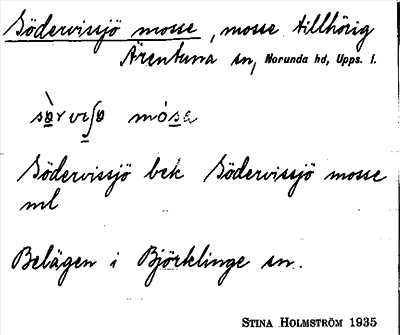 Södervissjö mosse, mosse tillhörig
Ärentuna sn, Norunda hd, Upps. l.
Södervissjö bek Södervissjö mosse
ml
Belägen i Björklinge sn.
STINA HOLMSTRÖM 1935